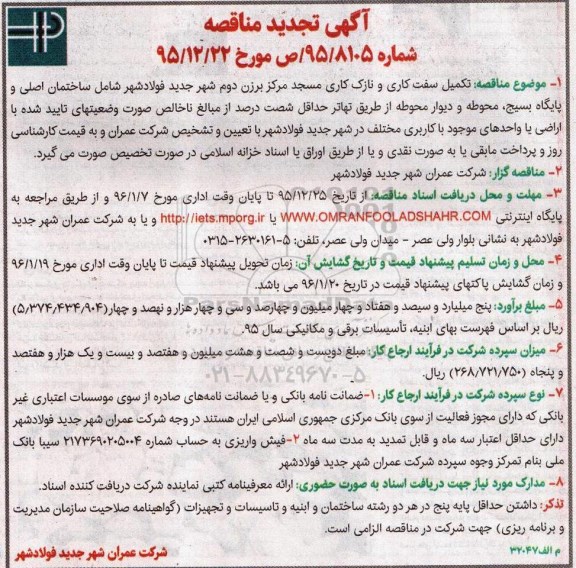 آگهی تجدید مناقصه
شماره ۹۵/۸۱۰۵/ص مورخ ۹۵/۱۲/۲۲
۱- موضوع مناقصه: تکمیل سفت کاری و نازک کاری مسجد مرکز برزن دوم شهر جدید فولادشهر شامل ساختمان اصلی و
پایگاه بسیج، محوطه و دیوار محوطه از طریق تهاتر حداقل شصت درصد از مبالغ ناخالص صورت وضعیتهای تایید شده با
اراضی یا واحدهای موجود با کاربری مختلف در شهر جدید فولادشهر با تعیین و تشخیص شرکت عمران و به قیمت کارشناسی
روز و پرداخت مابقی یا به صورت نقدی و یا از طریق اوراق یا اسناد خزانه اسلامی در صورت تخصیص صورت می گیرد.
۲- مناقصه گزار: شرکت عمران شهر جدید فولادشهر
۳- مهلت و محل دریافت اسناد مناقصه: از تاریخ ۹۵/۱۲/۲۵ تا پایان وقت اداری مورخ ۹۶/۱/۷ و از طریق مراجعه به
پایگاه اینترنتی WWW.OMRANFOOLADSHAHR.COM یا http://iets.mporg.ir و یا به شرکت عمران شهر جدید
فولادشهر به نشانی بلوار ولی عصر - میدان ولی عصر، تلفن: ۵-۰۳۱۵۲۶۳۰۱۶۱
۴- محل و زمان تسلیم پیشنهاد قیمت و تاریخ گشایش آن: زمان تحویل پیشنهاد قیمت تا پایان وقت اداری مورخ ۹۶/۱/۱۹
و زمان گشایش پاکتهای پیشنهاد قیمت در تاریخ ۹۶/۱/۲۰ می باشد.
۵- مبلغ برآورد: پنج میلیارد و سیصد و هفتاد و چهار میلیون و چهارصد و سی و چهار هزار و نهصد و چهار (۵/۳۷۴/۴۳۴/۹۰۴)
ریال بر اساس فهرست بهای ابنیه، تأسیسات برقی و مکانیکی سال ۹۵.
۶- میزان سپرده شرکت در فرآیند ارجاع کار: مبلغ دویست و شصت و هشت میلیون و هفتصد و بیست و یک هزار و هفتصد
و پنجاه (۲۶۸/۷۲۱/۷۵۰) ریال.
۷- نوع سپرده شرکت در فرآیند ارجاع کار: ۱-ضمانت نامه بانکی و یا ضمانت نامه‌های صادره از سوی موسسات اعتباری غیر
بانکی که دارای مجوز فعالیت از سوی بانک مرکزی جمهوری اسلامی ایران هستند در وجه شرکت عمران شهر جدید فولادشهر
دارای حداقل اعتبار سه ماه و قابل تمدید به مدت سه ماه ۲-فیش واریزی به حساب شماره ۲۱۷۳۶۹۰۲۰۵۰۰۴ سیبا بانک
ملی بنام تمرکز وجوه سپرده شرکت عمران شهر جدید فولادشهر
۸- مدارک مورد نیاز جهت دریافت اسناد به صورت حضوری: ارائه معرفینامه کتبی نماینده شرکت دریافت کننده اسناد.
تذکر: داشتن حداقل پایه پنج در هر دو رشته ساختمان و ابنیه و تاسیسات و تجهیزات (گواهینامه صلاحیت سازمان مدیریت
و برنامه ریزی) جهت شرکت در مناقصه الزامی است.
م الف ۳۲۰۴۷
شرکت عمران شهر جدید فولادشهر
ParsNamadData
۰۲۱-۸۸۳۴۹۶۷۰-۵